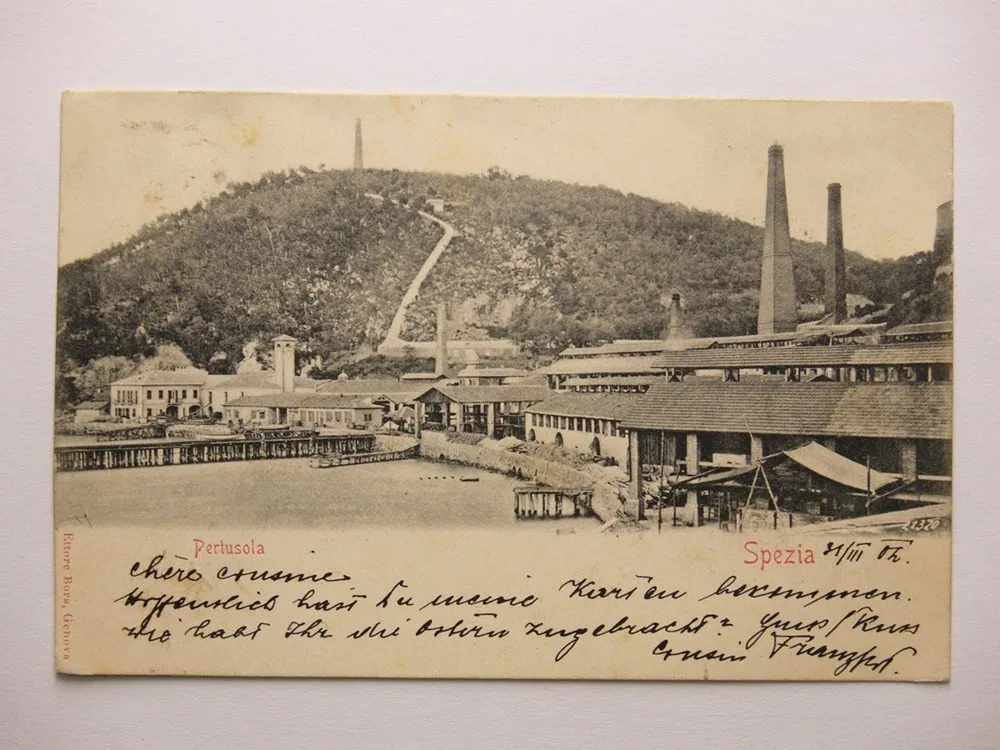 21370
Pertusola
Spezia 31/III 02.
Ettore Bora, Genova
chère cousine
Hoffentlich hast Du meine Karten bekommen.
Wie habt Ihr die Ostern zugebracht? Gruss/Kuss
Cousin